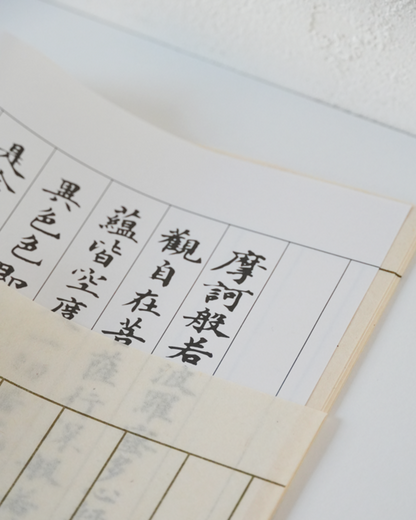 摩訶般若波羅蜜多心
觀自在菩薩行深般若
蘊皆空度一切
異色色即
是舍